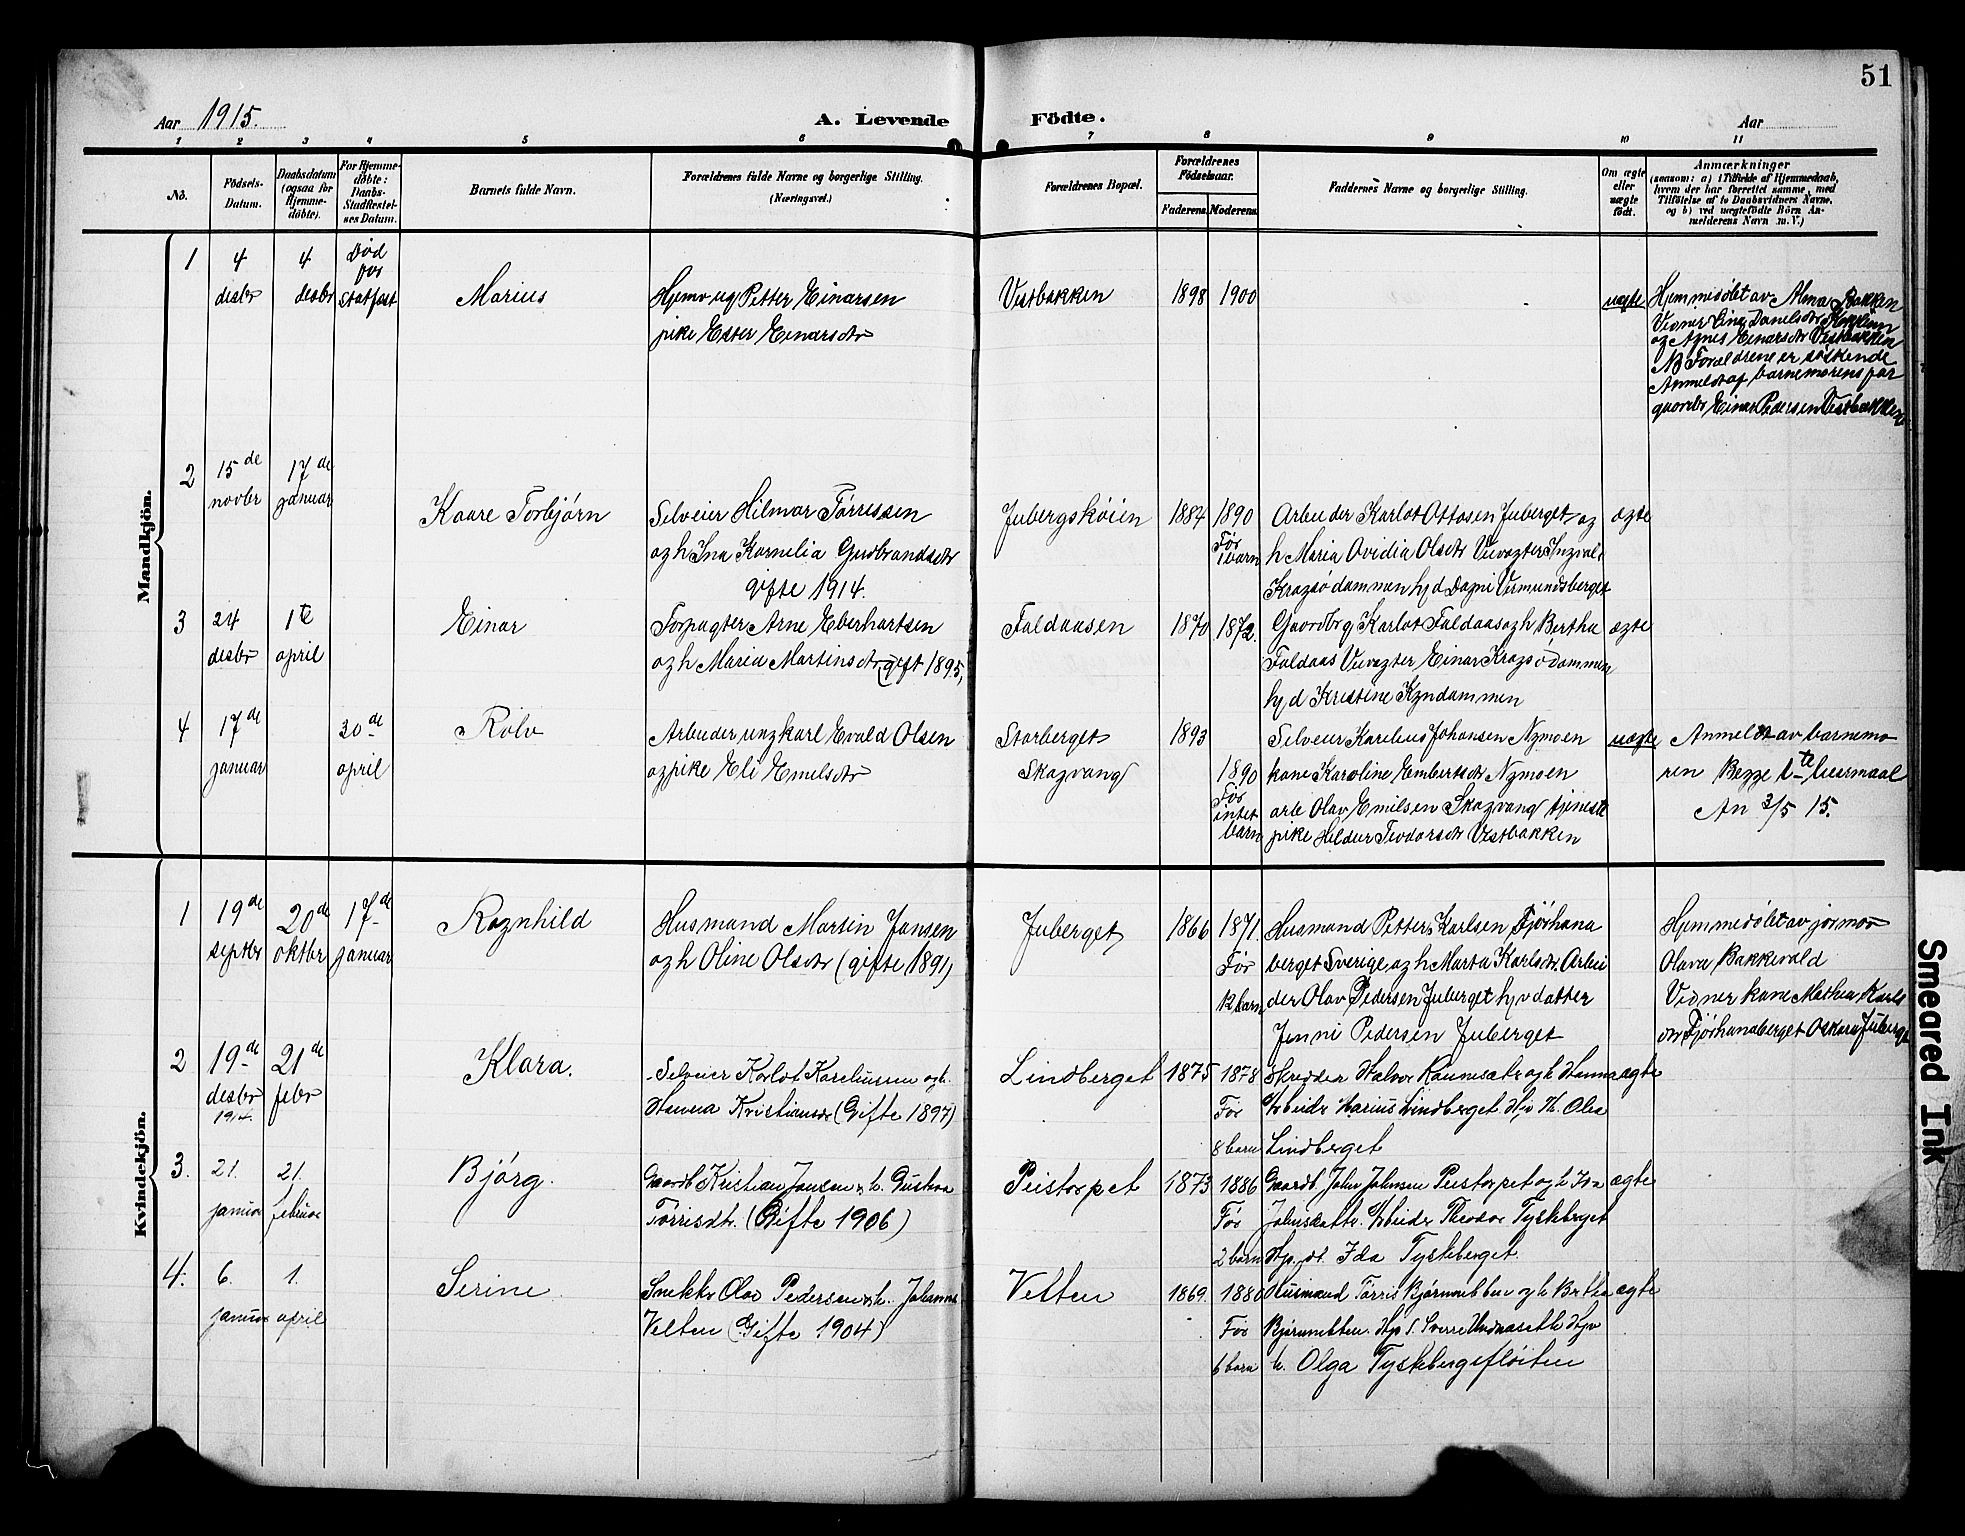 51
Aar 1915.
A. Levende Fødte.
Aar
1 2 3 4 5 6 7 8 9 10 11
No.
Fødsels-Datum.
Daabsdatum (ogsaa for Hjemme-døbte).
For Hjemme-døbte: Daabs-Stadfæstel-ses Datum.
Barnets fulde Navn.
Forældrenes fulde Navne og borgerlige Stilling.
(Næringsvei.)
Forældrenes Bopæl.
Forældrenes Fødselsaar.
Faderens. Moderens.
Faddernes Navne og borgerlige Stilling.
Om ægte eller uægte født.
Anmærkninger
(saasom: a) i Tilfælde af Hjemmedaab, hvem der har forrettet samme, med Tilføielse af to Daabsvidners Navne, og b) ved uægtefødte Børn An-melderens Navn m. V.)
Mandkjön.
1
4 desbr
4 desbr
Død før statfæst
Marius
Hjemv ug Petter Einarsen
pike Ester Einarsdtr
Vestbakken
1898
1900
uægte
Hjemmedøbt av Alma Bakken
og Agnes Einarsdtr Vestbakken
NB Forældrene er søskende
Anmeldt af barnemorens far
gaardbr Einar Pedersen Vestbakken
2
15de novbr
17de januar
Kaare Torbjørn
Selveier Hilmar Tørrissen
og h Ina Kornelia Gudbrandsdtr
gifte 1914.
Jubergskøien
1884
1890
Før 1 barn
Arbeider Karlot Ottosen Juberget og
h Maria Ovidia Olsdtr Vievogter Ingvald
Kragsødammen hjd Dagni Vermundsberget
ægte
3
24 desbr
1te april
Einar
Forpagter Arne Eberhartsen
og h Maria Martinsdtr (gift 1895,
Faldaasen
1870
1872.
Gaardbrg Karlot Faldaas og h Bertha
Faldaas Vievogter Einar Kragsødammen
hjd Kristine Kyndammen
ægte
4
17de januar
30de april
Rolv
Arbeider ungkarl Evald Olsen
og pike Eli Emilsdtr
Storberget
Skogvang
1893
1890
Før intet barn
Selveier Karelius Johansen Nymoen
kone Karoline Embertsdtr Nymoen
arb Olav Emilsen Skogvang tjeneste
pike Hildur Teodorsdtr Vestbakken
uægte
Anmeldt av barnemo
ren Begge 1te leiermaal
An 3/5 15.
Kvindekjön.
1
19de septbr
20de oktbr
17de januar
Ragnhild
Husmand Martin Jansen
og h Oline Olsdtr (gifte 1891)
Juberget
1866
1871.
Før 12 barn
Husmand Petter Karlsen Fjørhana
berget Sverige og h Marta Karlsdtr. Arbei
der Olav Pedersen Juberget hjv datter
Jenni Pedersen Juberget
Hjemmedøbt av jormor
Olava Bakkevold
Vidner kone Mathea Karls
dtr Fjørhanaberget Oskara Juberget
2
19de desbr 1914.
21de febr
Klara.
Selveier Karlot Kareliussen og h.
Hanna Kristiansdtr (Gifte 1897)
Lindberget
1875
1878
Før 8 barn
Skrædder Halvor Rønnesætr og h Hanna
Arbeider Marius Lindberget. Hjv H. Olea
Lindberget
ægte
3.
21. januar
21. februar
Bjørg.
Gaardb Kristian Jansen & h. Gustava
Tørrisdtr. (Gifte 1906)
Peistorpet
1873
1886
Før 2 barn
Gaardb. John Johnsen Peistorpet og h Ida
Johnsdattr. Arbeider Theodor Tyskeberget
Hjv. dt. Ida Tyskeberget.
ægte
4.
6. januar
1. april
Serine.
Snekkr Olav Pedersen & h. Johanna
Velten (Gifte 1904)
Velten
1869.
1880
Før 6 barn
Husmand Tørris Bjørneubben og h Bertha
h. Olga Tyskebergsfløiten
ægte
Smeared Ink